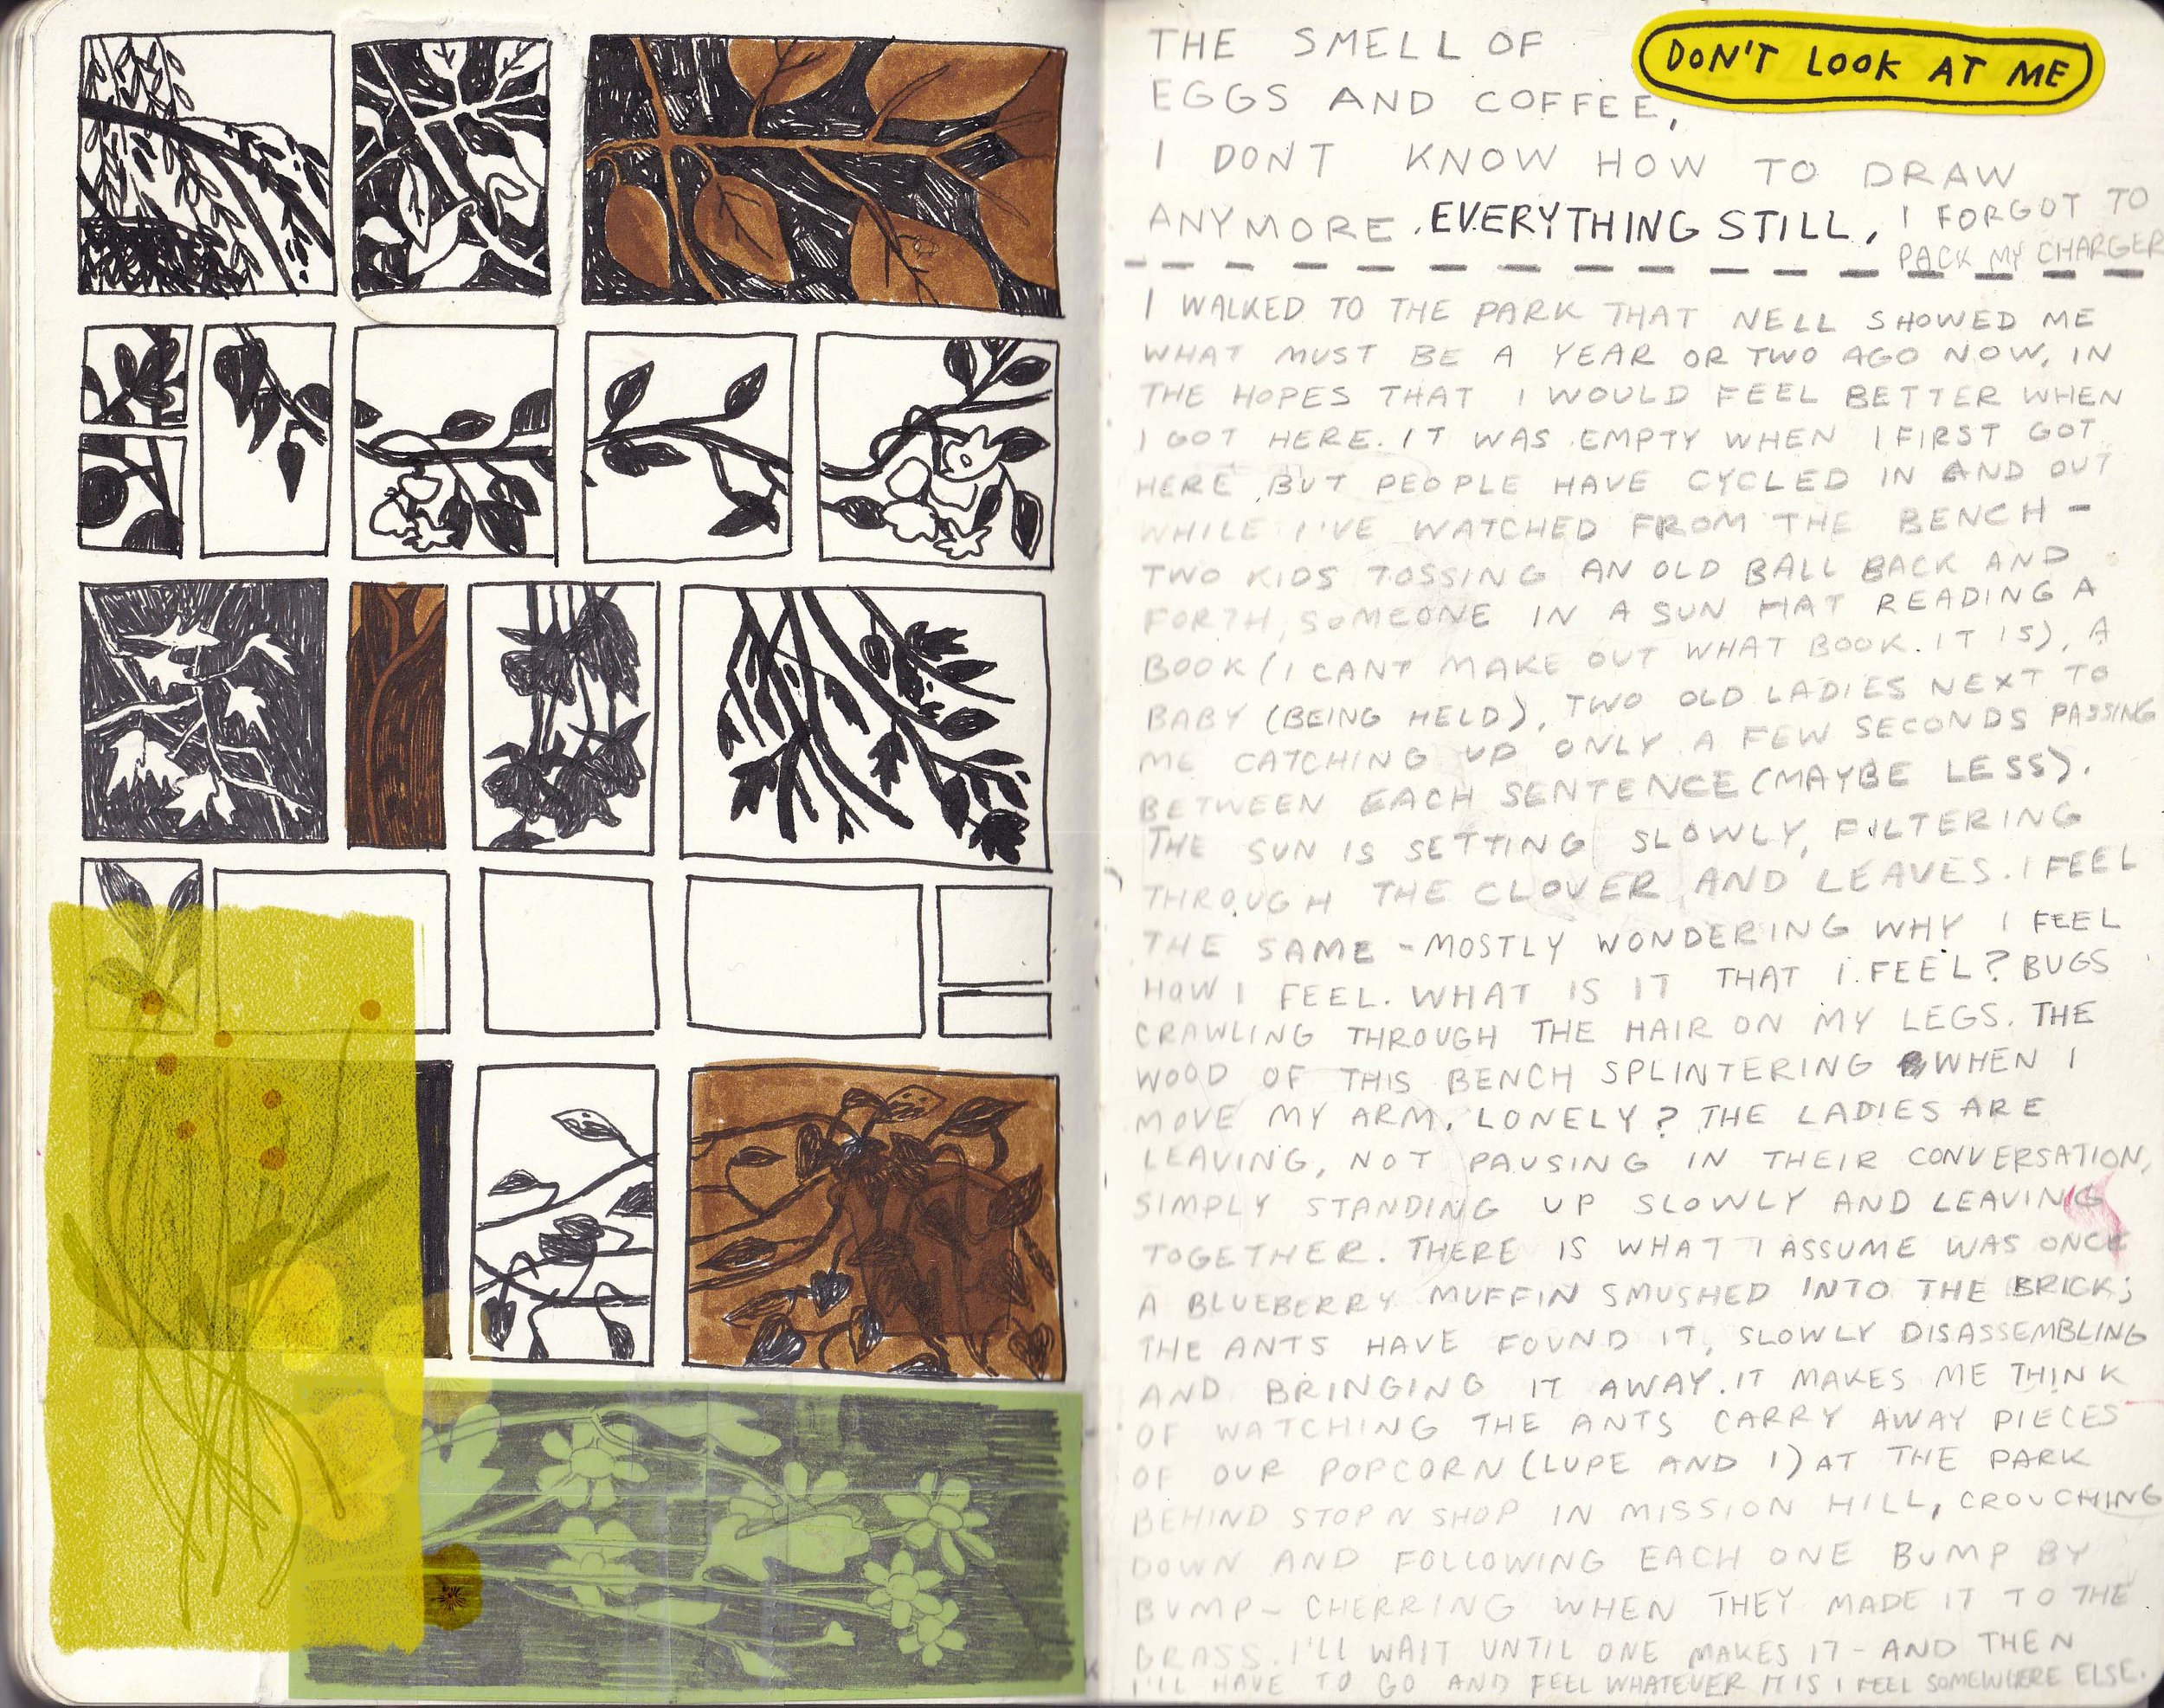 THE SMELL OF
DON'T LOOK AT ME
EGGS AND COFFEE,
I DONT KNOW HOW TO DRAW
ANYMORE. EVERYTHING STILL, I FORGOT TO
PACK MY CHARGER
I WALKED TO THE PARK THAT NELL SHOWED ME
WHAT MUST BE A YEAR OR TWO AGO NOW, IN
THE HOPES THAT I WOULD FEEL BETTER WHEN
I GOT HERE. IT WAS EMPTY WHEN I FIRST GOT
HERE, BUT PEOPLE HAVE CYCLED IN AND OUT
WHILE I'VE WATCHED FROM THE BENCH -
TWO KIDS TOSSING AN OLD BALL BACK AND
FORTH, SOMEONE IN A SUN HAT READING A
BOOK (I CANT MAKE OUT WHAT BOOK IT IS), A
BABY (BEING HELD), TWO OLD LADIES NEXT TO
ME CATCHING UP ONLY A FEW SECONDS PASSING
BETWEEN EACH SENTENCE (MAYBE LESS).
THE SUN IS SETTING SLOWLY, FILTERING
THROUGH THE CLOVER AND LEAVES. I FEEL
THE SAME - MOSTLY WONDERING WHY I FEEL
HOW I FEEL. WHAT IS IT THAT I FEEL? BUGS
CRAWLING THROUGH THE HAIR ON MY LEGS. THE
WOOD OF THIS BENCH SPLINTERING WHEN I
MOVE MY ARM. LONELY? THE LADIES ARE
LEAVING, NOT PAUSING IN THEIR CONVERSATION,
SIMPLY STANDING UP SLOWLY AND LEAVING
TOGETHER. THERE IS WHAT I ASSUME WAS ONCE
A BLUEBERRY MUFFIN SMUSHED INTO THE BRICK;
THE ANTS HAVE FOUND IT, SLOWLY DISASSEMBLING
AND BRINGING IT AWAY. IT MAKES ME THINK
OF WATCHING THE ANTS CARRY AWAY PIECES
OF OUR POPCORN (LUPE AND I) AT THE PARK
BEHIND STOP N SHOP IN MISSION HILL, CROUCHING
DOWN AND FOLLOWING EACH ONE BUMP BY
BUMP - CHERRING WHEN THEY MADE IT TO THE
GRASS. I'LL WAIT UNTIL ONE MAKES IT - AND THEN
I'LL HAVE TO GO AND FELL WHATEVER IT IS I FEEL SOMEWHERE ELSE.